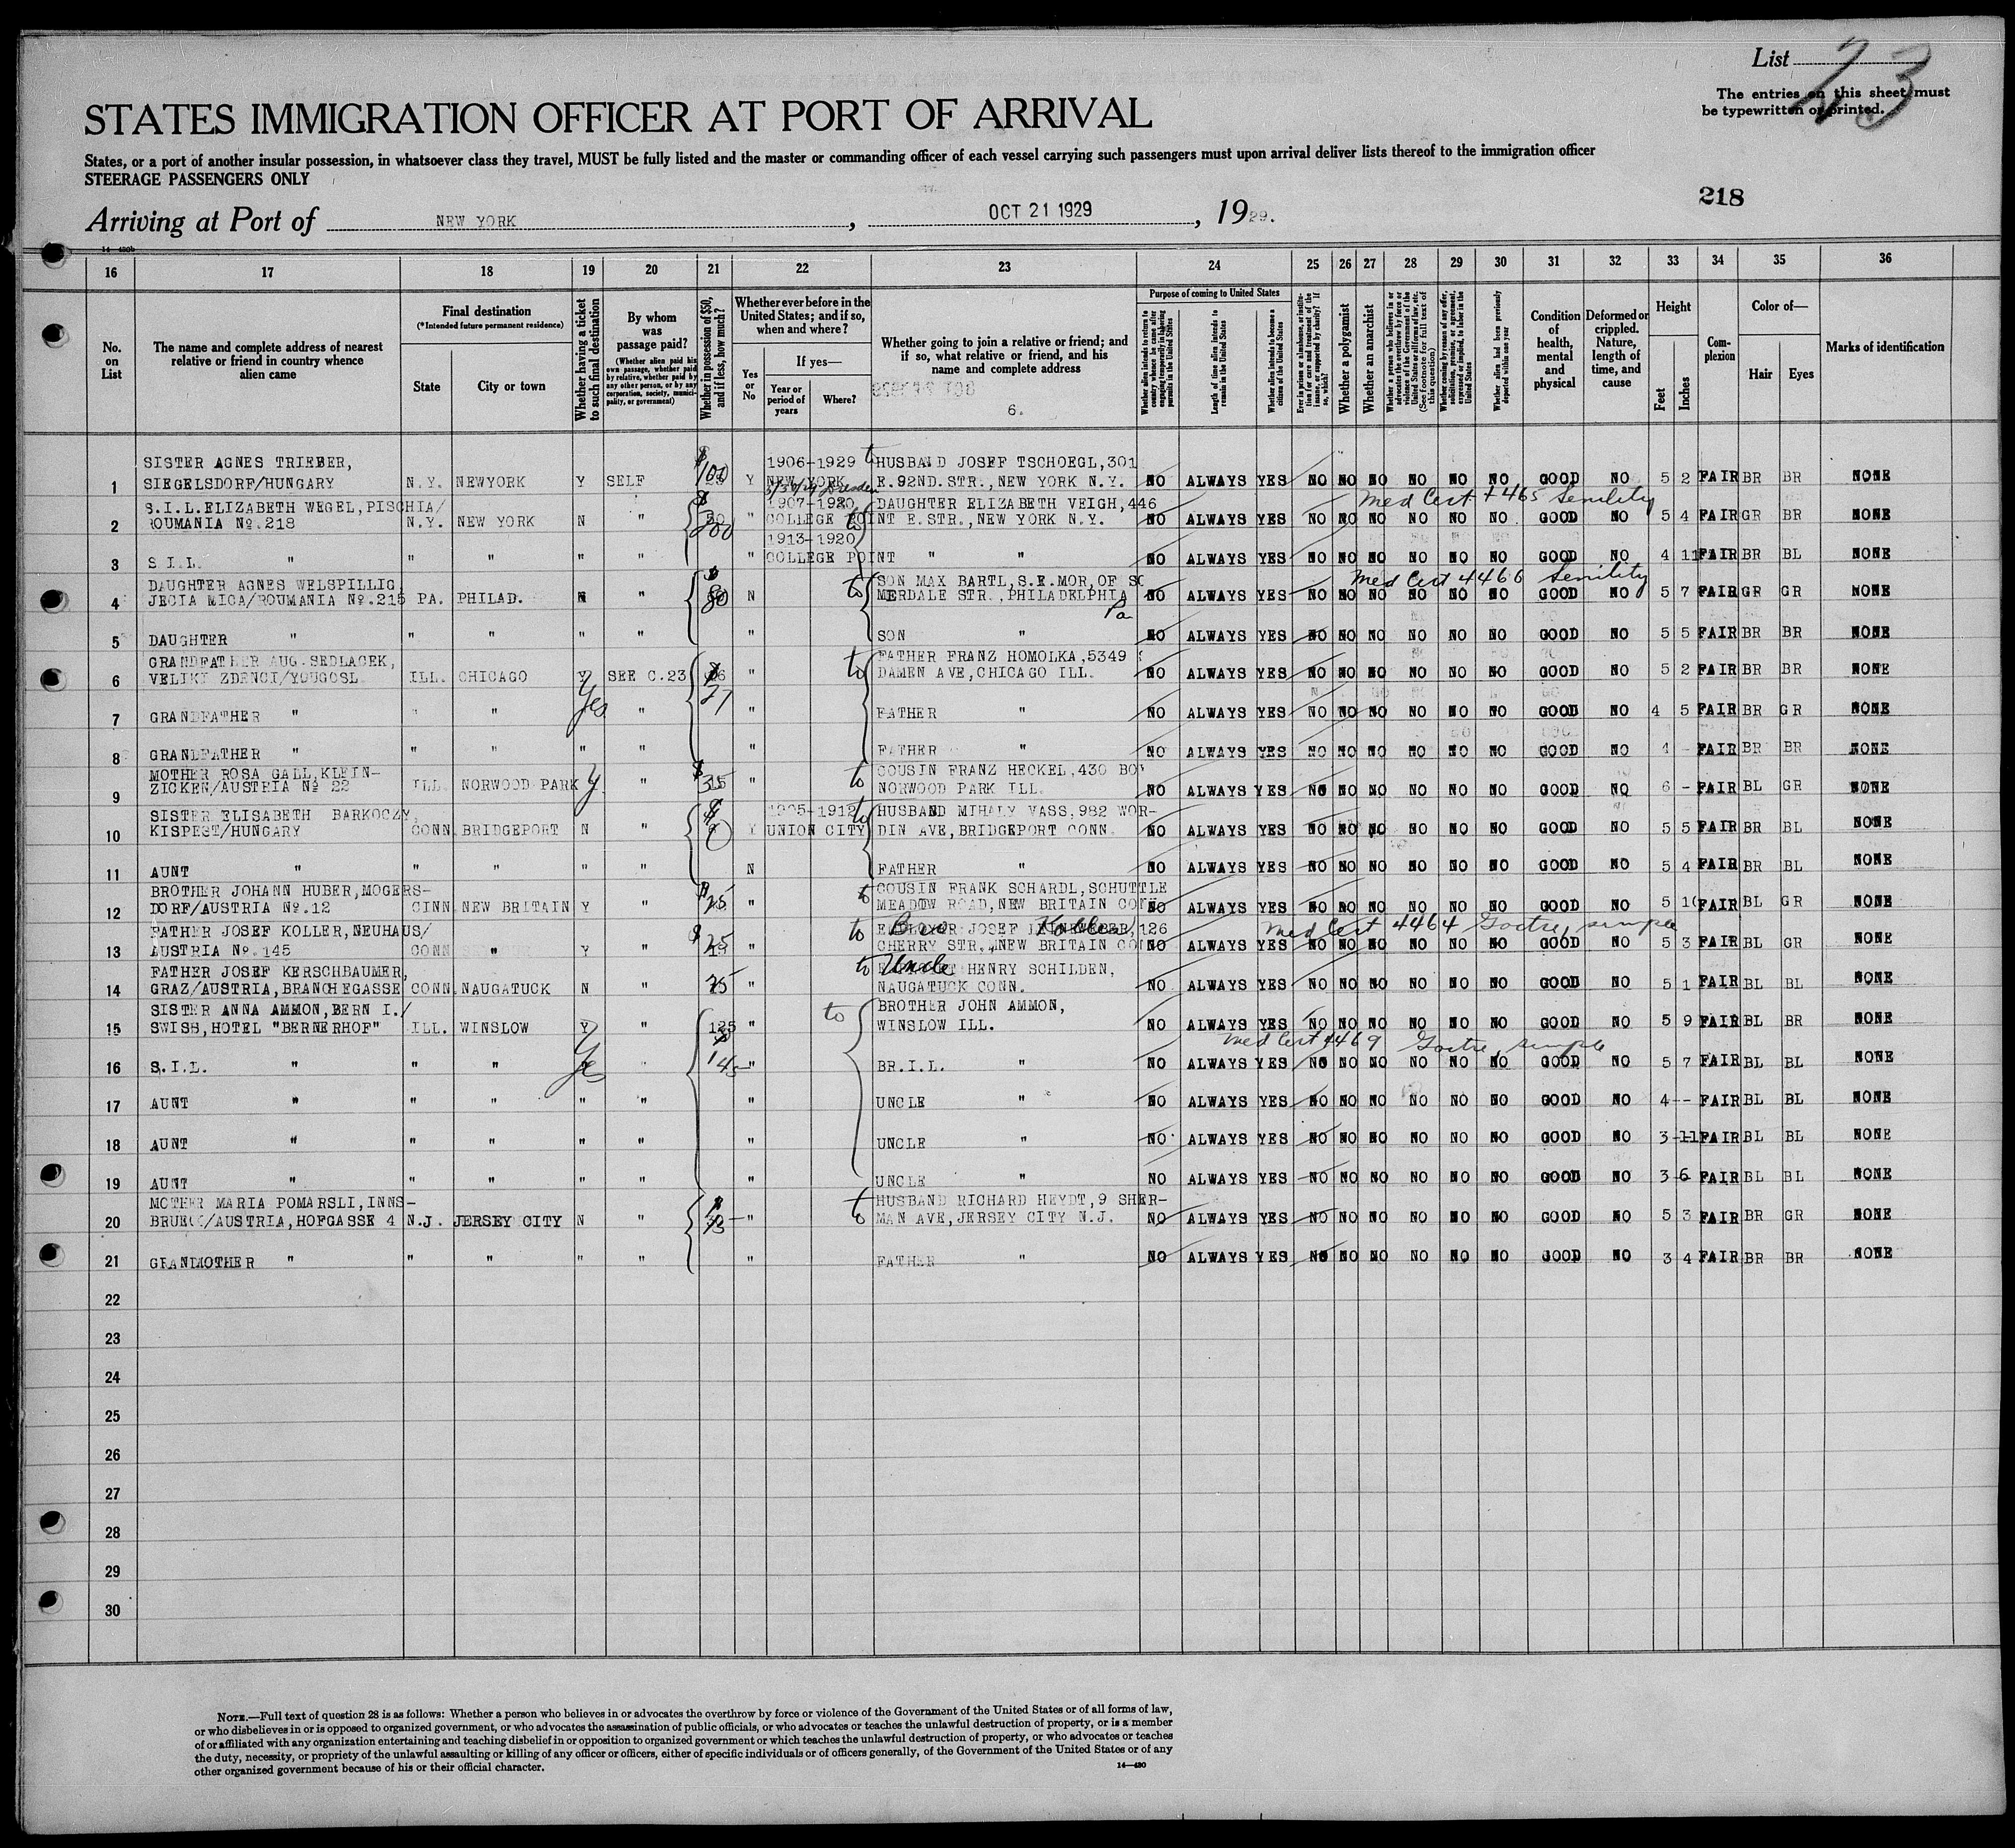 List 23
The entries on this sheet must
be typewritten or printed.
STATES IMMIGRATION OFFICER AT PORT OF ARRIVAL
States, or a port of another insular possession, in whatsoever class they travel, MUST be fully listed and the master or commanding officer of each vessel carrying such passengers must upon arrival deliver lists thereof to the immigration officer
STEERAGE PASSENGERS ONLY
218
Arriving at Port of NEW YORK, OCT 21 1929, 1929.
14—430b
16 17 18 19 20 21 22 23 24 25 26 27 28 29 30 31 32 33 34 35 36
No. on List
The name and complete address of nearest relative or friend in country whence alien came
Final destination
(*Intended future permanent residence)
State
City or town
Whether having a ticket to such final destination
By whom was passage paid?
(Whether alien paid his own passage, whether paid by relative, whether paid by any other person, or by any corporation, society, municipality, or government)
Whether in possession of $50, and if less, how much?
Whether ever before in the United States; and if so, when and where?
Yes or No
If yes—
Year or period of years
Where?
Whether going to join a relative or friend; and if so, what relative or friend, and his name and complete address
6.
Purpose of coming to United States
Whether alien intends to return to country whence he came after engaging temporarily in laboring pursuits in the United States
Length of time alien intends to remain in the United States
Whether alien intends to become a citizen of the United States
Ever in prison or almshouse, or institution for care and treatment of the insane, or supported by charity? If so, which?
Whether a polygamist
Whether an anarchist
Whether a person who believes in or advocates the overthrow by force or violence of the Government of the United States or all forms of law, etc. (See footnote for full text of this question)
Whether coming by reason of any offer, solicitation, promise, or agreement, expressed or implied, to labor in the United States
Whether alien had been previously deported within one year
Condition of health, mental and physical
Deformed or crippled. Nature, length of time, and cause
Height
Feet
Inches
Complexion
Color of—
Hair
Eyes
Marks of identification
SISTER AGNES TRIEBER, 1906-1929 to HUSBAND JOSEF TSCHOEGL, 301
1 SIEGELSDORF/HUNGARY N.Y. NEWYORK Y SELF $100 Y NEW YORK E. 92ND. STR., NEW YORK N.Y. NO ALWAYS YES NO NO NO NO NO NO GOOD NO 5 2 FAIR BR BR NONE
S.I.L. ELIZABETH WEGEL, PISCHIA/ 1907-1920 DAUGHTER ELIZABETH VEIGH, 446 Med Cert 4465 Senility
2 ROUMANIA No. 218 N.Y. NEW YORK N " $200 " COLLEGE POINT to E. STR., NEW YORK N.Y. NO ALWAYS YES NO NO NO NO NO NO GOOD NO 5 4 FAIR GR BR NONE
1913-1920
3 S I.L. " " " " " " COLLEGE POINT " " NO ALWAYS YES NO NO NO NO NO NO GOOD NO 4 11 FAIR BR BL NONE
DAUGHTER AGNES WELSPILLIG, SON MAX BARTL, S.E. MOR, OF SO Med Cert 4466 Senility
4 JECIA MICA/ROUMANIA No. 215 PA. PHILAD. N " $80 N to MERDALE STR., PHILADELPHIA Pa NO ALWAYS YES NO NO NO NO NO NO GOOD NO 5 7 FAIR GR GR NONE
5 DAUGHTER " " " " " " SON " NO ALWAYS YES NO NO NO NO NO NO GOOD NO 5 5 FAIR BR BR NONE
GRANDFATHER AUG. SEDLACEK, FATHER FRANZ HOMOLKA, 5349 S
6 VELIKI ZDENCI/YOUGOSL. ILL. CHICAGO Y SEE C.23 " to DAMEN AVE, CHICAGO ILL. NO ALWAYS YES NO NO NO NO NO NO GOOD NO 5 2 FAIR BR BR NONE
7 GRANDFATHER " " " Yes " " FATHER " NO ALWAYS YES NO NO NO NO NO NO GOOD NO 4 5 FAIR BR GR NONE
8 GRANDFATHER " " " " " " FATHER " NO ALWAYS YES NO NO NO NO NO NO GOOD NO 4 - FAIR BR BR NONE
MOTHER ROSA GALL, KLEIN- to COUSIN FRANZ HECKEL, 430
9 ZICKEN/AUSTRIA No 22 ILL. NORWOOD PARK Y " $35 " NORWOOD PARK ILL. NO ALWAYS YES NO NO NO NO NO NO GOOD NO 6 - FAIR BL GR NONE
SISTER ELISABETH BARKOCZY, 1905-1912 to HUSBAND MIHALY VASS, 982 WOR-
10 KISPEST/HUNGARY CONN. BRIDGEPORT N " Y UNION CITY DIN AVE, BRIDGEPORT CONN. NO ALWAYS YES NO NO NO NO NO NO GOOD NO 5 5 FAIR BR BL NONE
11 AUNT " " " " " N FATHER " NO ALWAYS YES NO NO NO NO NO NO GOOD NO 5 4 FAIR BR BL NONE
BROTHER JOHANN HUBER, MOGERS- to COUSIN FRANK SCHARDL, SCHUTTLE
12 DORF/AUSTRIA No. 12 CINN. NEW BRITAIN Y " $25 " MEADOW ROAD, NEW BRITAIN CONN NO ALWAYS YES NO NO NO NO NO NO GOOD NO 5 10 FAIR BL GR NONE
FATHER JOSEF KOLLER, NEUHAUS/ to Bro Koller JOSEF 126 Med Cert 4464 Goitre, simple
13 AUSTRIA No. 145 CONN " Y " $25 " CHERRY STR., NEW BRITAIN CONN NO ALWAYS YES NO NO NO NO NO NO GOOD NO 5 3 FAIR BL GR NONE
FATHER JOSEF KERSCHBAUMER, to Uncle HENRY SCHILDEN,
14 GRAZ/AUSTRIA, BRANCHEGASSE CONN. NAUGATUCK N " 25 " NAUGATUCK CONN. NO ALWAYS YES NO NO NO NO NO NO GOOD NO 5 1 FAIR BL BL NONE
SISTER ANNA AMMON, BERN I./ to BROTHER JOHN AMMON,
15 SWISS, HOTEL "BERNERHOF" ILL. WINSLOW Y " 125 " WINSLOW ILL. NO ALWAYS YES NO NO NO NO NO NO GOOD NO 5 9 FAIR BL BR NONE
Med Cert 4469 Goitre, simple
16 S.I.L. " " " Yes " $145 " BR.I.L. " NO ALWAYS YES NO NO NO NO NO NO GOOD NO 5 7 FAIR BL BL NONE
17 AUNT " " " " " " UNCLE " NO ALWAYS YES NO NO NO NO NO NO GOOD NO 4 - FAIR BL BL NONE
18 AUNT " " " " " " UNCLE " NO ALWAYS YES NO NO NO NO NO NO GOOD NO 3 11 FAIR BL BL NONE
19 AUNT " " " " " " UNCLE " NO ALWAYS YES NO NO NO NO NO NO GOOD NO 3 6 FAIR BL BL NONE
MOTHER MARIA POMARSLI, INNS- to HUSBAND RICHARD HEYDT, 9 SHER-
20 BRUECK/AUSTRIA, HOFGASSE 4 N.J. JERSEY CITY N " " MAN AVE, JERSEY CITY N.J. NO ALWAYS YES NO NO NO NO NO NO GOOD NO 5 3 FAIR BR GR NONE
21 GRANDMOTHER " " " " " " FATHER " NO ALWAYS YES NO NO NO NO NO NO GOOD NO 3 4 FAIR BR BR NONE
22
23
24
25
26
27
28
29
30
NOTE.—Full text of question 28 is as follows: Whether a person who believes in or advocates the overthrow by force or violence of the Government of the United States or of all forms of law,
or who disbelieves in or is opposed to organized government, or who advocates the assassination of public officials, or who advocates or teaches the unlawful destruction of property, or is a member
of or affiliated with any organization entertaining and teaching disbelief in or opposition to organized government or which teaches the unlawful destruction of property, or who advocates or teaches
the duty, necessity, or propriety of the unlawful assaulting or killing of any officer or officers, either of specific individuals or of officers generally, of the Government of the United States or of any
other organized government because of his or their official character.
14—430